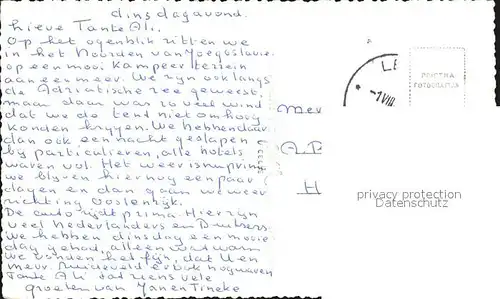 dinsdagavond.
Lieve Tante Ali.
Op het ogenblik zitten we
in het Noorden van Joegoslavië.
op een mooi Kampeerterrein
aan een meer. We zijn ook langs
de Adriatische zee geweest,
maar daar was zo veel wind
dat we de tent niet omhoog
konden krijgen. We hebben daar
dan ook een nacht geslapen
bij particulieren, alle hotels
waren vol. Het weer is nu prima
we blijven hier nog een paar
dagen en dan gaan we weer
richting Oostenrijk.
De auto rijdt prima. Hier zijn
veel Nederlanders en Duitsers.
We hebben dinsdag een mooie
dag gehad, alleen wat warm
we vonden het fijn, dat U en
mevr. er ook nog waren
Tante Ali dat zeens vele
groeten van Jan en Tineke
Mev
A
H
LE
-7 VIII
privacy protection
Datenschutz